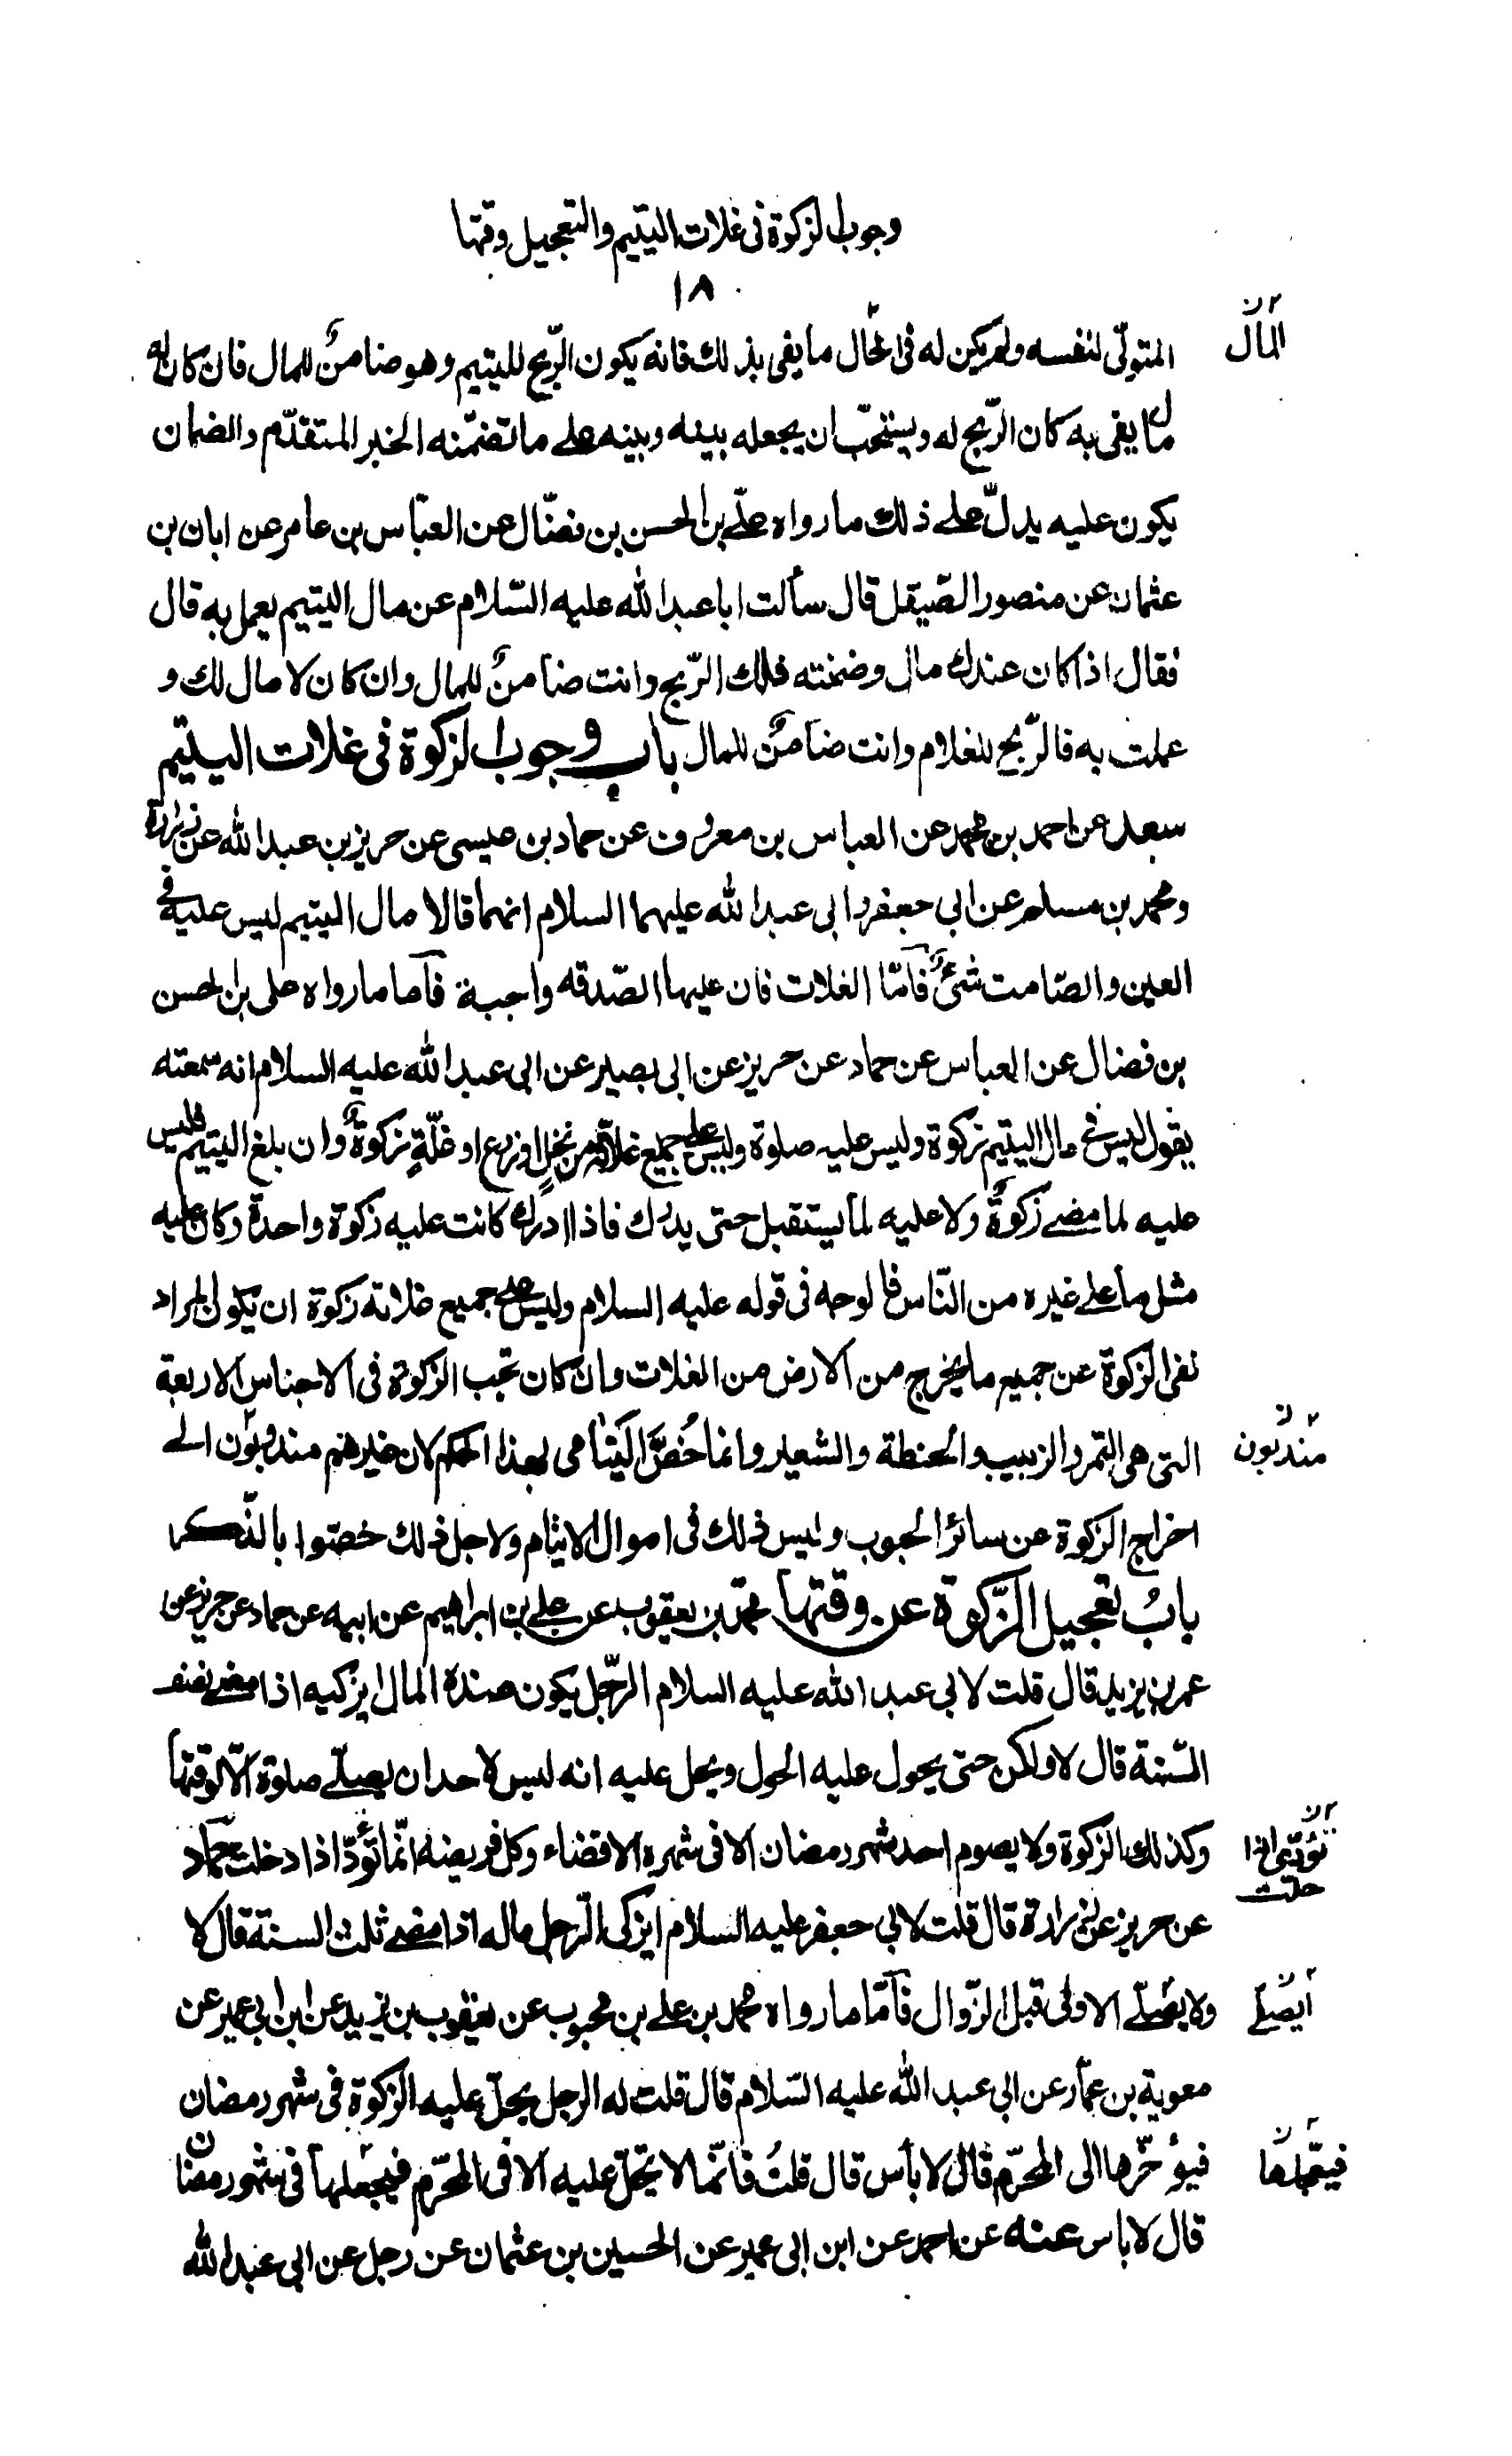 وجوب الزكوة فى غلات اليتيم والتعجيل وقتها
١٨
المتولّى لنفسه ولم يكن له فى الحال ما يفى بذلك فانه يكون الرّبح لليتيم وهو ضامنٌ للمال فان كان له
المال
مال يفى به كان الرّبح له ويستحبّ ان يجعله بينه وبينه على ما تضمّنه الخبر المتقدّم والضمان
يكون عليه يدلّ على ذلك ما رواه علّى بن الحسن بن فضّال عن العبّاس بن عامر عن ابان بن
عثمان عن منصور الصّيقل قال سألت ابا عبد الله عليه السّلام عن مال اليتيم يعمل به قال
فقال اذا كان عندك مال وضمنته فلك الرّبح وانت ضامنٌ للمال وان كان لا مال لك و
عملت به فالرّبح للغلام وانت ضامنٌ للمال باب وجوب الزكوة فى غلات اليتيم
سعد عن احمد بن محمد عن العباس بن معروف عن حماد بن عيسى عن حريز بن عبد الله عن زرارة
ومحمد بن مسلم عن ابى جعفر وابى عبد الله عليهما السلام انهما قالا مال اليتيم ليس عليه فى
العين والصّامت شئٌ فامّا الغلات فان عليها الصّدقه واجبة فآما ما رواه على بن الحسن
بن فضال عن العباس عن حماد عن حريز عن ابى بصير عن ابى عبد الله عليه السلام انه سمعته
يقول ليس فى مال اليتيم زكوة وليس عليه صلوة وليس على جميع غلاّته من نخلٍ او زرع او غلّةٍ زكوةٌ وان بلغ اليتيم فليس
عليه لما مضى زكوةٌ ولا عليه لما يستقبل حتى يدرك فاذا ادرك كانت عليه زكوة واحدة وكان عليه
مثل ما على غيره من النّاس فالوجه فى قوله عليه السلام وليس على جميع غلاته زكوة ان يكون المراد
نفى الزكوة عن جميع ما يخرج من الارض من الغلات وان كان تجب الزكوة فى الاجناس الاربعة
التى هى التمر والزبيب والحنطة والشعير وانما خُصَّ اليَتامى بهذا الحكم لان غيرهم مندوبون الى
مندبون
اخراج الزكوة عن سائر الحبوب وليس ذلك فى اموال الايتام ولاجل ذلك خصّوا بالذّكر
بابُ تعجيل الزّكوة عن وقتها محمّد بن يعقوب عن على بن ابراهيم عن ابيه عن حماد عن حريز عن
عمر بن يزيد قال قلت لابى عبد الله عليه السلام الرّجل يكون عنده المال ايزكيه اذا مضى نصف
السّنة قال لا ولكن حتى يحول عليه الحول ويحل عليه انه ليس لاحد ان يصلّى صلوة الاّ لوقتها
وكذلك الزكوة ولا يصوم احد شهر رمضان الا فى شهره الا قضاء وكل فريضه انّما تؤدّ اذا دخلت حمّاد
تؤدّى اذا
حلّت
عن حريز عن زرارة قال قلت لابى جعفر عليه السلام ايزكى الرّجل ماله اذا مضى ثلث السنة قال لا
ولا يصّلى الاولى قبل الزّوال فآمّا ما رواه محمد بن على بن محبوب عن يعقوب بن يزيد عن ابن ابى عمير عن
ايصلى
معوية بن عمّار عن ابى عبد الله عليه السّلام قال قلت له الرجل يحلّ عليه الزكوة فى شهر رمضان
فيؤخّرها الى المحرّم قال لا بأس قال قلتُ فانّما لا تحلّ عليه الا فى المحرّم فيجعلها فى شهر رمضان
فيعّجلها
قال لا باس عنه عن احمد عن ابن ابى عمير عن الحسين بن عثمان عن رجل عن ابى عبد الله